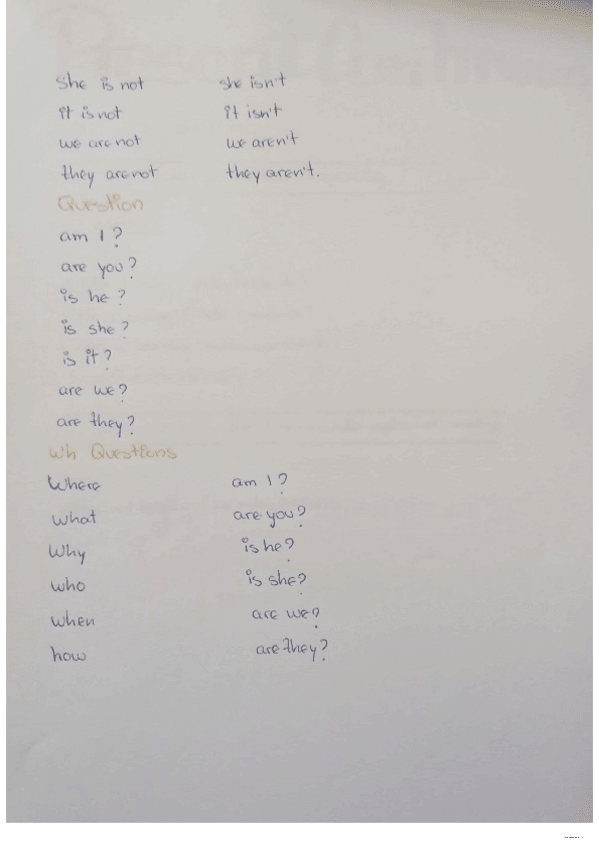 She is not she isn't
it is not it isn't
we are not we aren't
they are not they aren't.
Question
am I?
are you?
is he?
is she?
is it?
are we?
are they?
Wh Questions
Where am I?
what are you?
Why is he?
who is she?
when are we?
how are they?